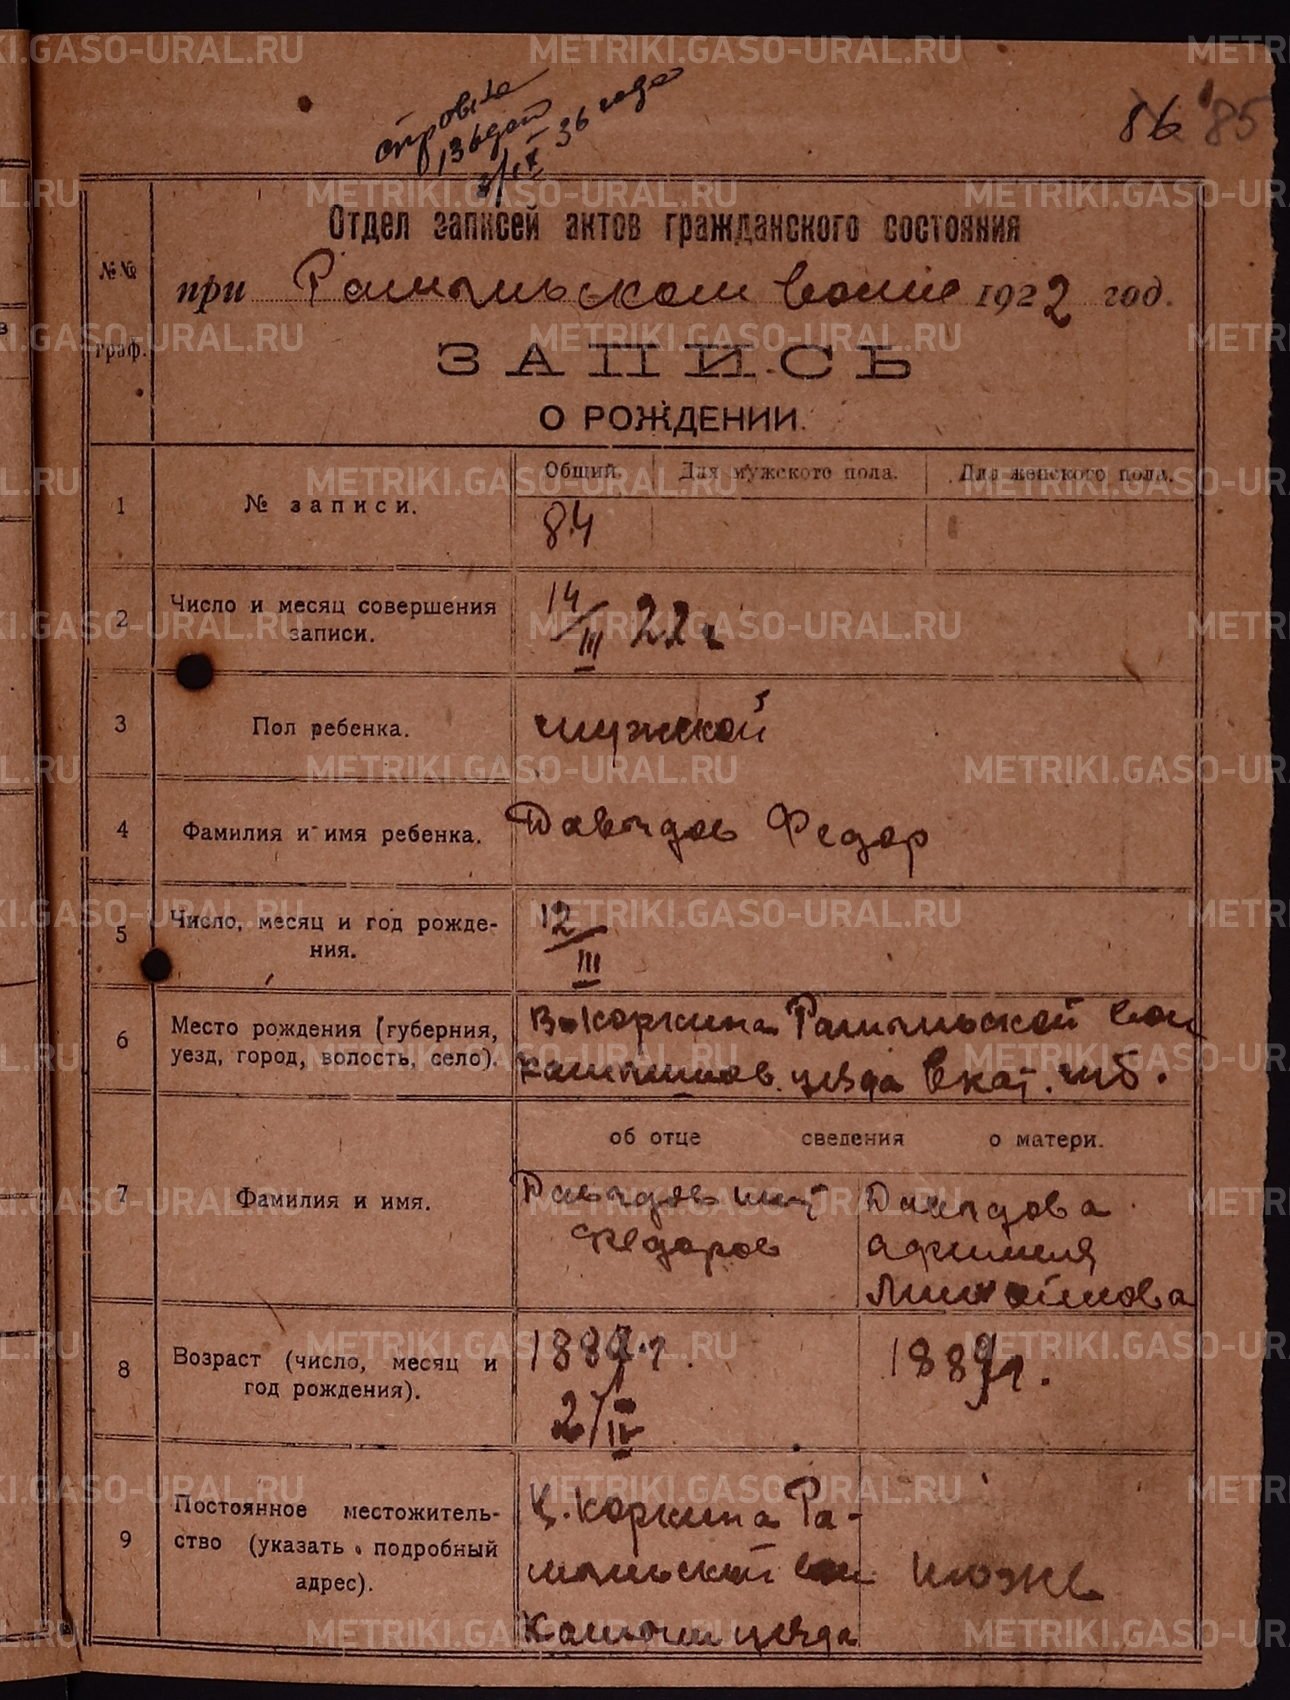 86 85
36 года
Отдел записей актов гражданского состояния
№№ граф.
при Рамыльском волис 1922 год.
ЗАПИСЬ
О РОЖДЕНИИ.
Общий. Для мужского пола. Для женского пола.
1 № записи. 84
2 Число и месяц совершения записи. 14/III 22 г
3 Пол ребенка. мужской
4 Фамилия и имя ребенка. Давыдов Федор
5 Число, месяц и год рождения. 12/III
6 Место рождения (губерния, уезд, город, волость, село).
в. Коркина Рамыльской вол
Камышлов. уезда Екат. губ.
об отце сведения о матери.
7 Фамилия и имя.
Давыдов
Федоров
Давыдова
8 Возраст (число, месяц и год рождения). 1889 г. 1889 г.
9 Постоянное местожительство (указать подробный адрес).
Коркина Ра-
мыльской вол тоже
Камышл уезда
METRIKI.GASO-URAL.RU